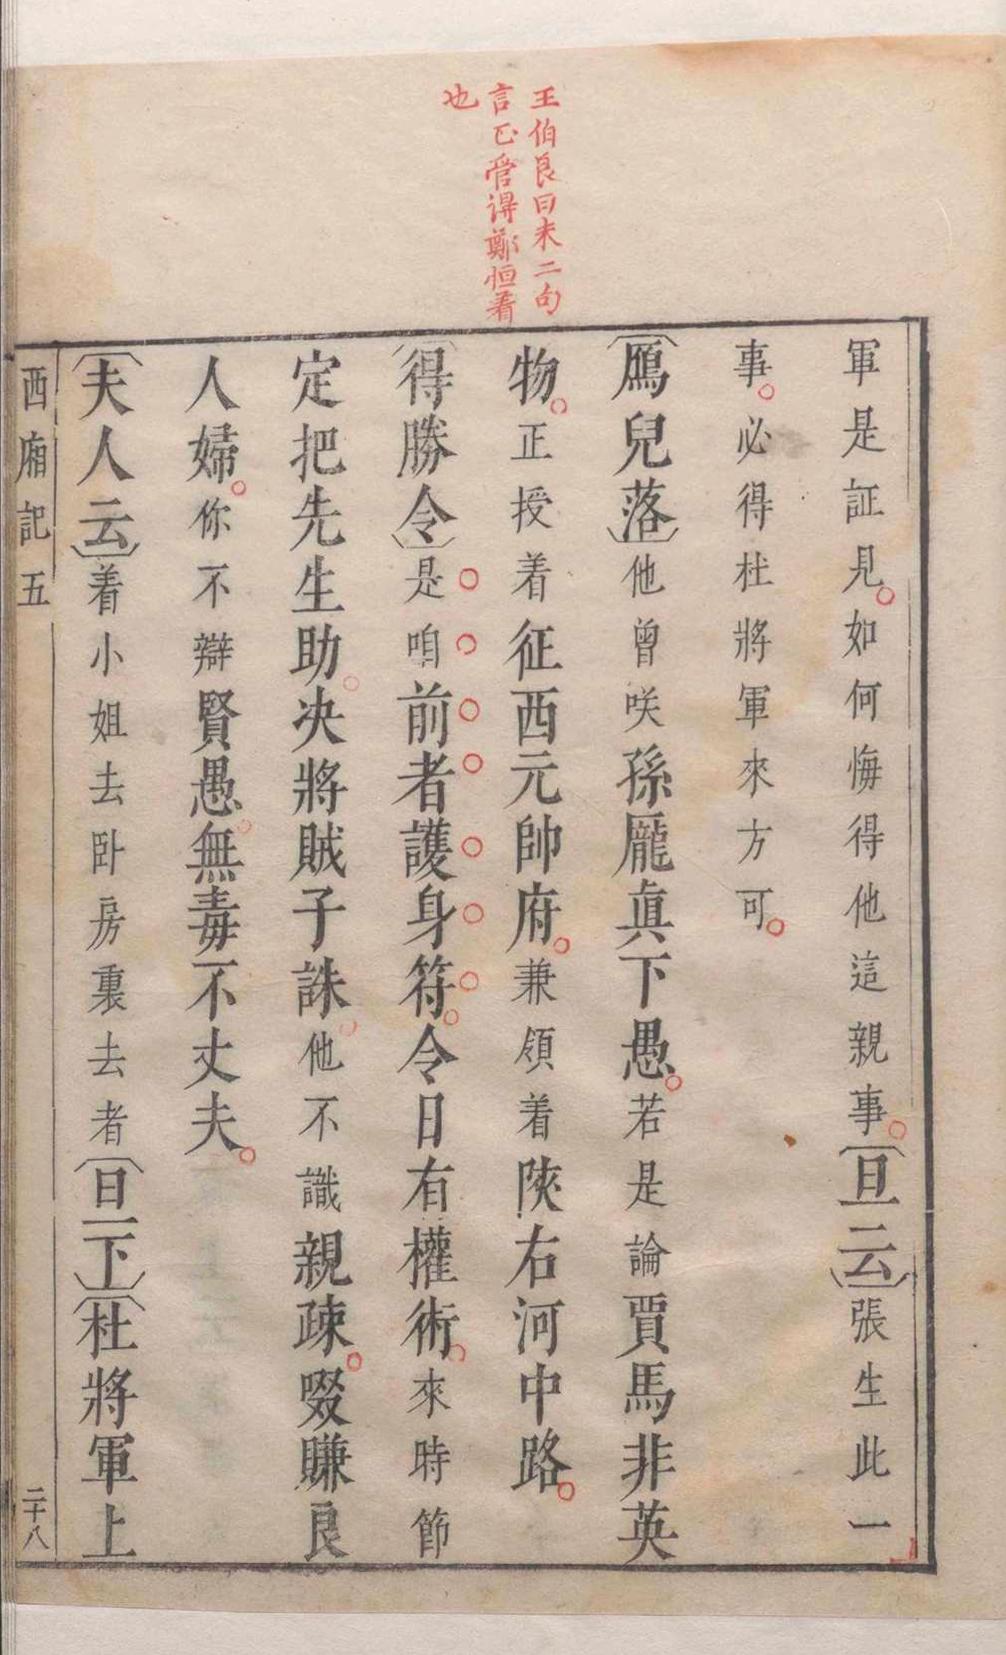 王伯良曰末二句
言正管得鄭恒着
也
軍是証見如何悔得他這親事〔旦云〕張生此一
事必得杜將軍來方可
〔鴈兒落〕他曾咲孫龐眞下愚若是論賈馬非英
物正授着征西元帥府兼領着陝右河中路
〔得勝令〕是咱前者護身符今日有權術來時節
定把先生助决將賊子誅他不識親疎啜賺良
人婦你不辯賢愚無毒不丈夫
〔夫人云〕着小姐去卧房裏去者〔旦下〕〔杜將軍上
西廂記五
二十八